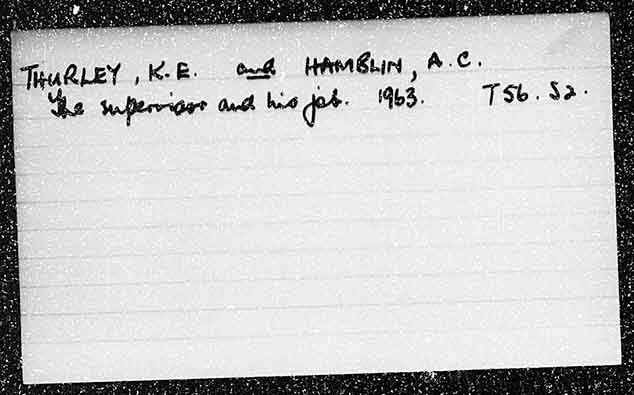 THURLEY, K.E. and HAMBLIN, A.C.
The supervisor and his job. 1963. T56.S2.